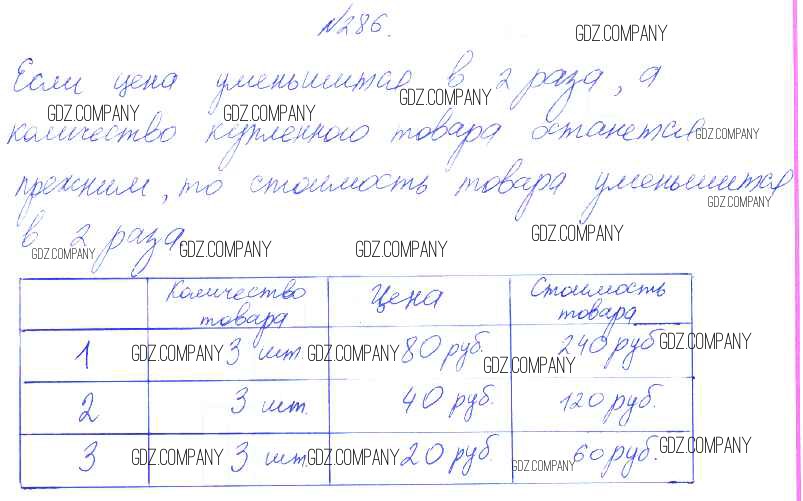 №286.
GDZ.COMPANY
Если цена уменьшится в 2 раза, а
GDZ.COMPANY GDZ.COMPANY GDZ.COMPANY
количество купленного товара останется
GDZ.COMPANY
прежним, то стоимость товара уменьшится
GDZ.COMPANY
в 2 раза
GDZ.COMPANY GDZ.COMPANY GDZ.COMPANY GDZ.COMPANY
Количество товара Цена Стоимость товара
1 3 шт. 80 руб. 240 руб
GDZ.COMPANY GDZ.COMPANY GDZ.COMPANY GDZ.COMPANY
2 3 шт. 40 руб. 120 руб.
3 3 шт. 20 руб. 60 руб.
GDZ.COMPANY GDZ.COMPANY GDZ.COMPANY GDZ.COMPANY